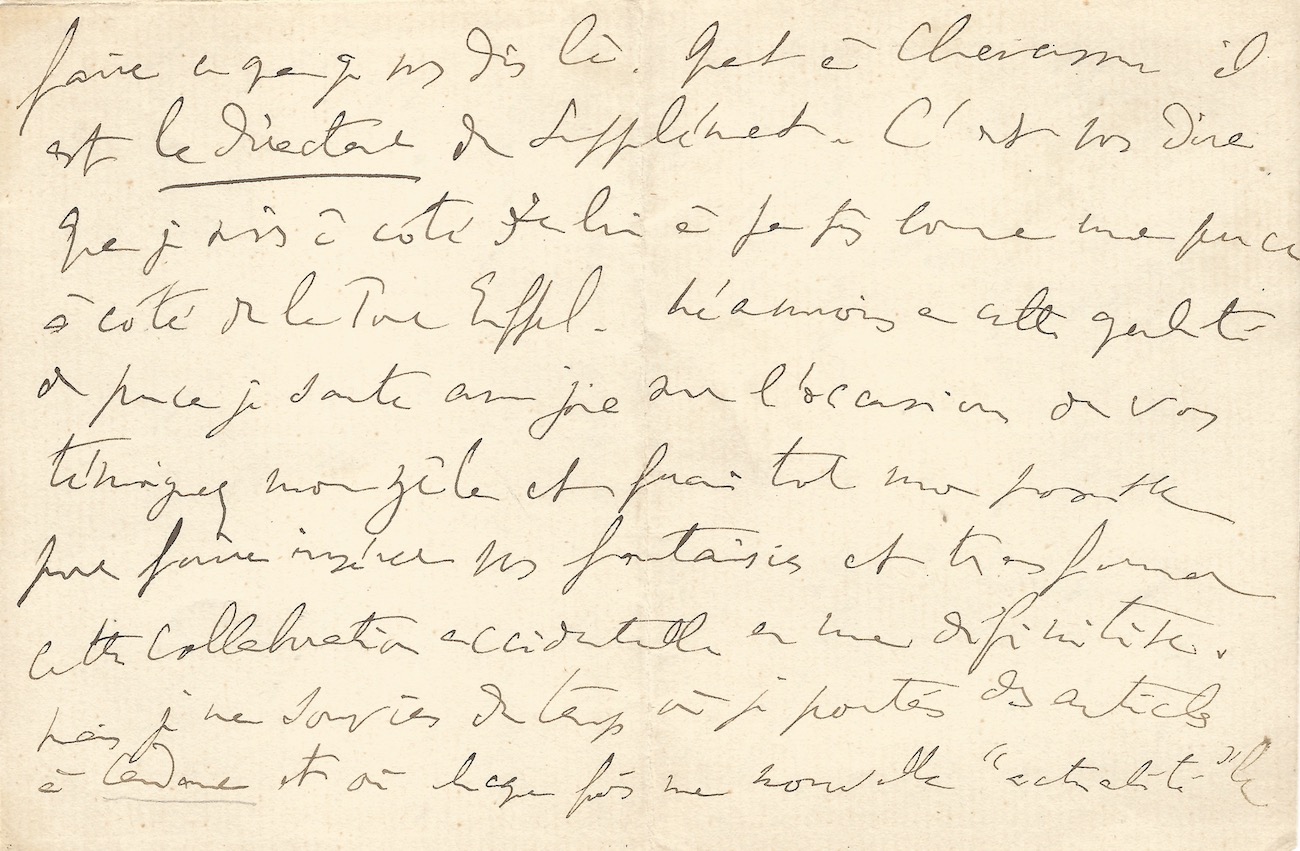 faire ce que je vous dis là. Quant à Chevassu il
est le directeur du Supplément. C'est vous dire
que je suis à côté de lui à peu près comme une puce
à côté de la Tour Eiffel. Néanmoins en cette qualité
de puce je saute avec joie sur l'occasion de vous
témoigner mon zèle et ferai tout mon possible
pour faire insérer vos fantaisies et transformer
cette collaboration accidentelle en une définitive.
Mais je me souviens du temps où je portais des articles
à Cardane et où chaque fois une nouvelle "actualité" le